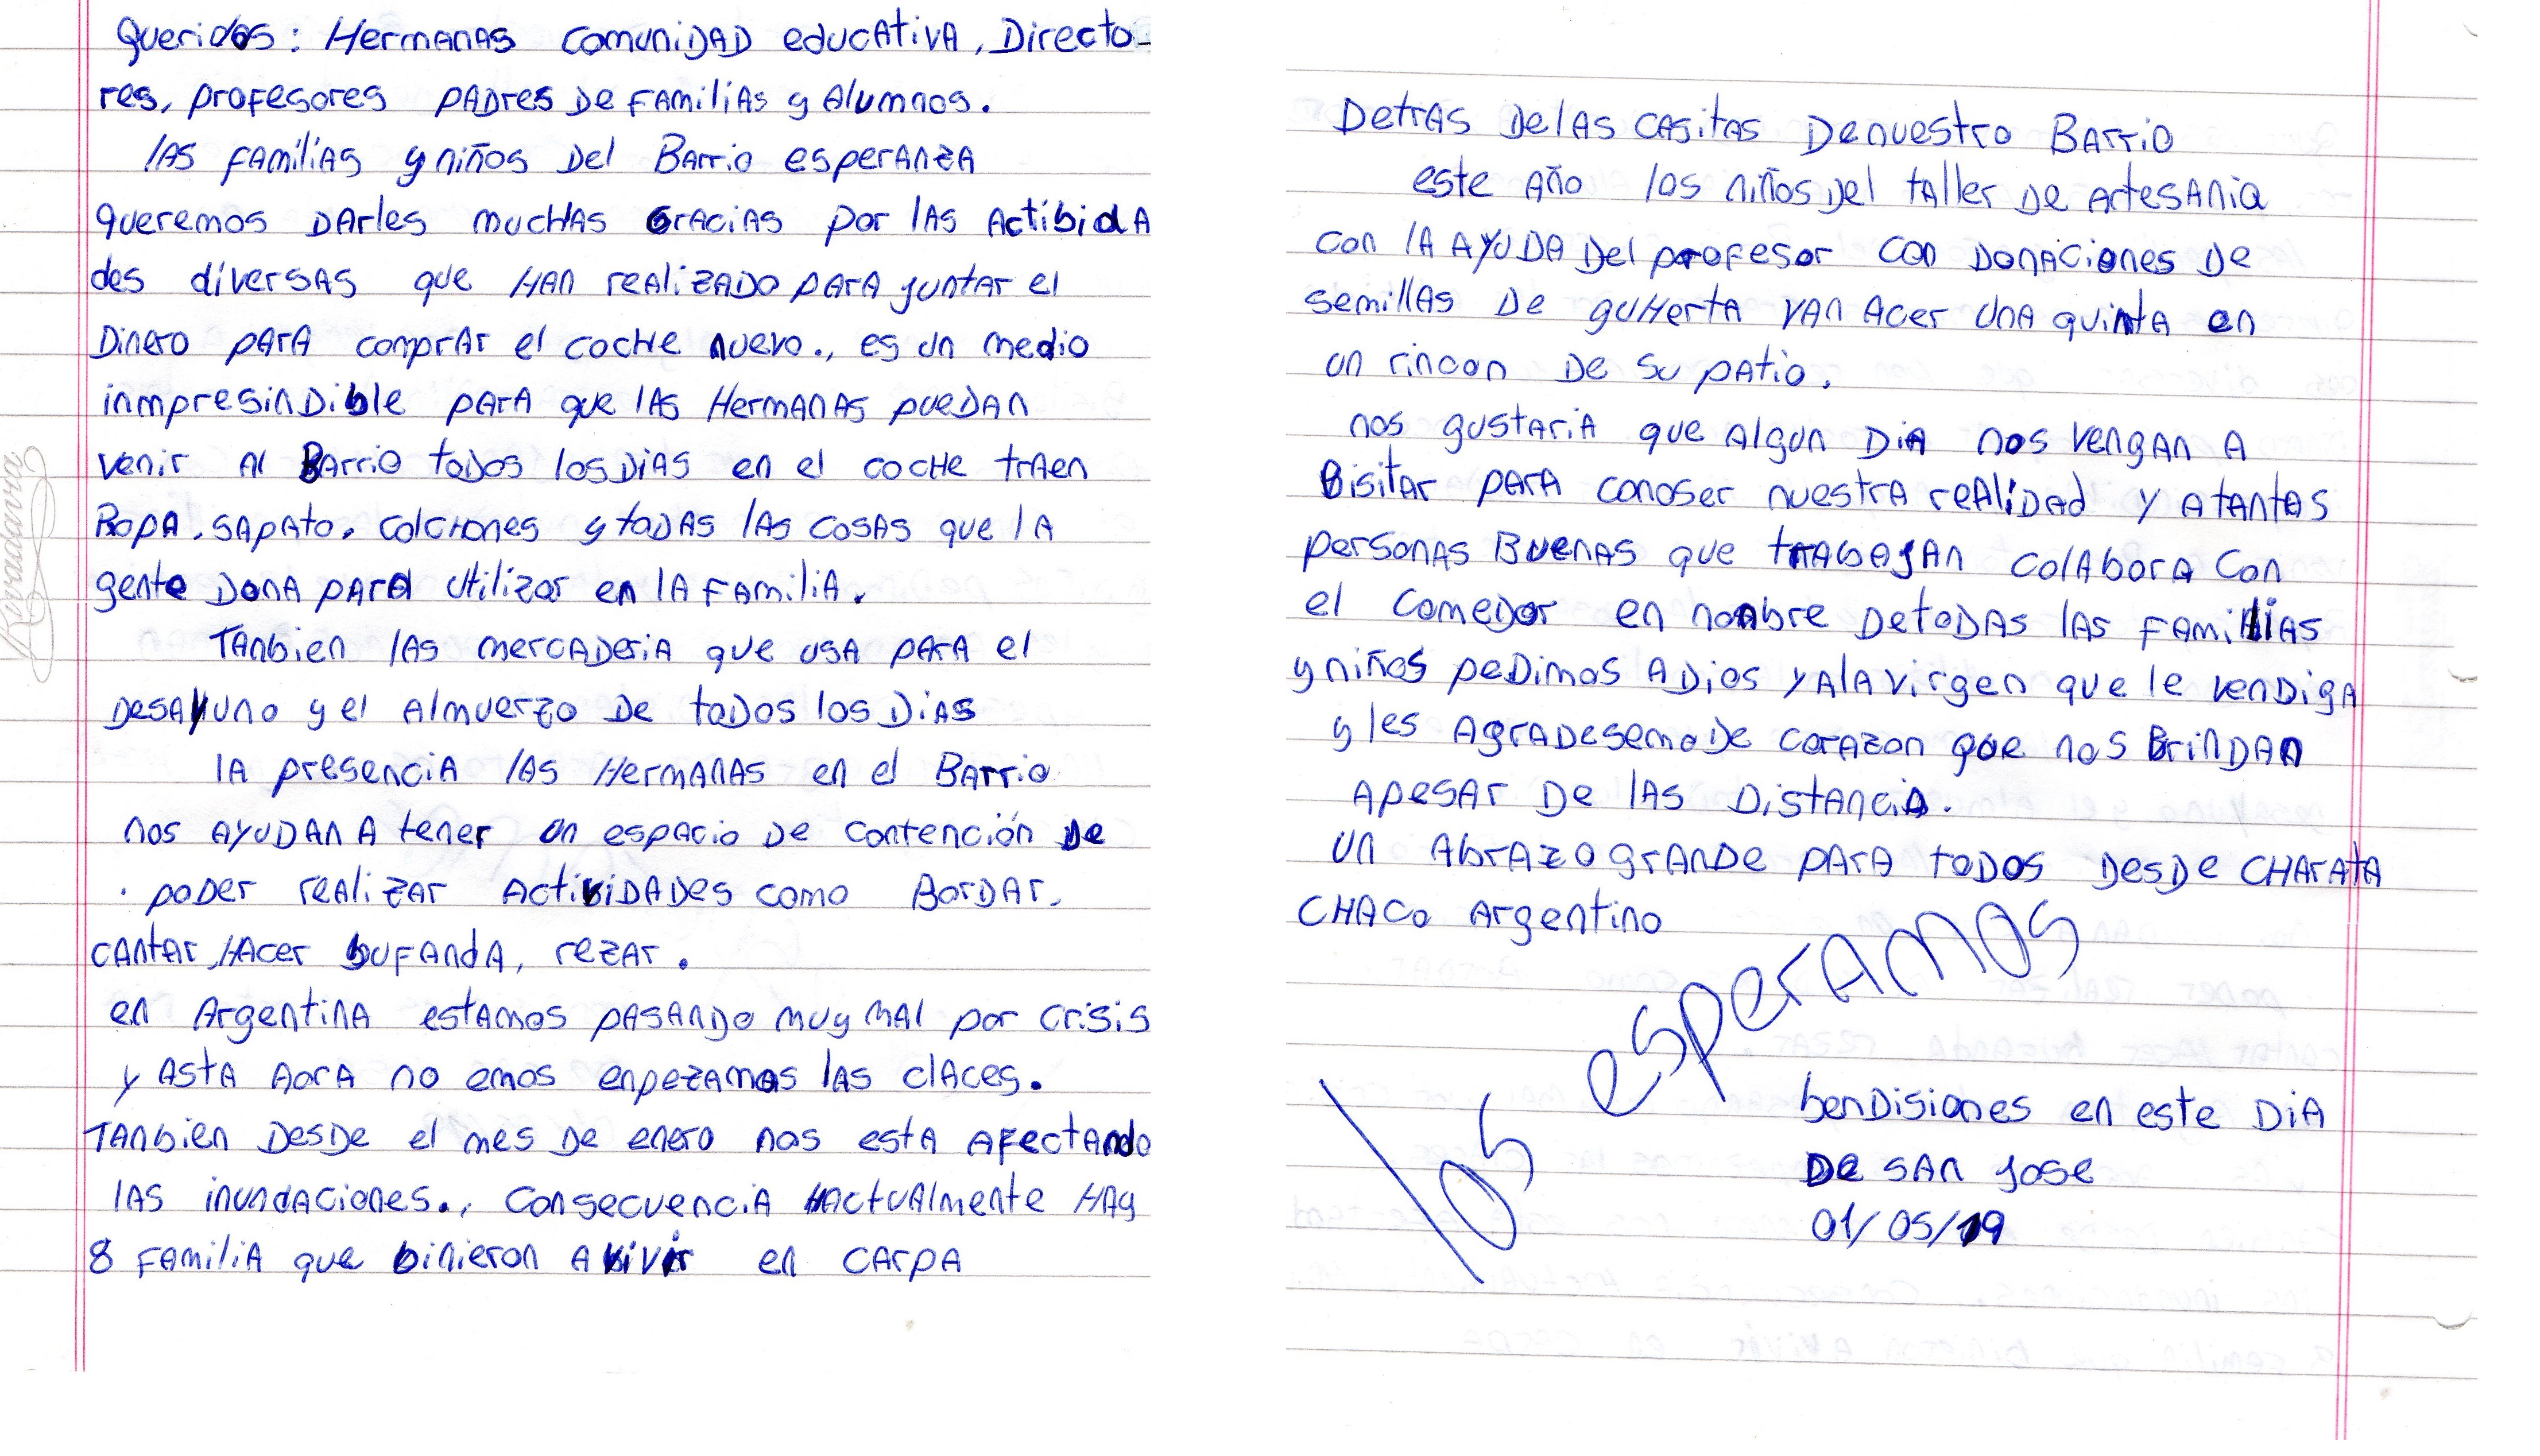 Queridos: Hermanas comuniDAD educativa, Directo-
res, profesores padres de familias y Alumnos.
las familias y niños del Barrio esperanza
queremos Darles muchas Gracias por las Actibida
des diversas que Han realizado para juntar el
Dinero para comprar el coche nuevo., es un medio
inmpresindible para que las Hermanas puedan
venir al Barrio todos los Dias en el coche traen
Ropa, sapato, colchones y todas las cosas que la
gente Dona para utilizar en la familia.
Tanbien las mercaderia que usa para el
Desayuno y el Almuerzo De todos los Dias
la presencia las Hermanas en el Barrio
nos Ayudan a tener un espacio de contención De
poder realizar Actividades como Bordar,
cantar, Hacer bufanda, rezar.
en Argentina estamos pasando muy mal por crisis
y asta aora no emos enpezamos las claces.
Tanbien Desde el mes De enero nos esta afectando
las inundaciones., consecuencia Hactualmente Hay
8 familia que binieron a vivir en carpa
Detras Delas casitas Denuestro Barrio
este año los niños Del taller De Artesania
con la ayuda Del profesor con Donaciones De
semillas De guHerta van Acer una quinta en
un rincon De su patio.
nos gustaria que algun Dia nos vengan a
Bisitar para conoser nuestra realidad y atantas
personas Buenas que trabajan colabora con
el comedor en nombre Detodas las familias
y niños pedimos aDios y ala virgen que le vendiga
y les AgradesemoDe corazon que nos Brindan
apesar De las Distancia.
un Abrazo grande para todos Desde Charata
CHACO Argentino
los esperamos
bendisiones en este Dia
De San Jose
01/05/19
Rivadavia